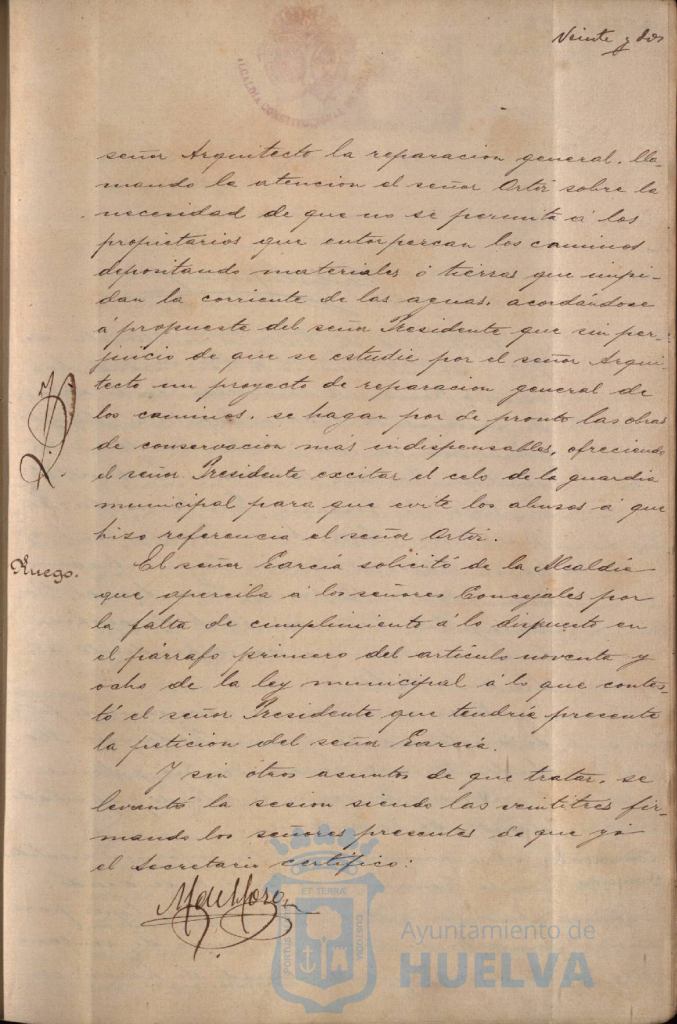 Veinte y dos
ALCALDIA CONSTITUCIONAL
señor Arquitecto la reparacion general, lla-
mando la atencion el señor Ortiz sobre la
necesidad de que no se permita á los
propietarios que entorpezcan los caminos
depositando materiales ó tierras que impi-
dan la corriente de las aguas, acordándose
á propuesta del señor Presidente que sin per-
juicio de que se estudie por el señor Arqui-
tecto un proyecto de reparacion general de
los caminos, se hagan por de pronto las obras
de conservacion más indispensables, ofreciendo
el señor Presidente excitar el celo de la guardia
municipal para que evite los abusos á que
hizo referencia el señor Ortiz.
Ruego.
El señor García solicitó de la Alcaldía
que aperciba á los señores Concejales por
la falta de cumplimiento á lo dispuesto en
el párrafo primero del artículo noventa y
ocho de la ley municipal á lo que contes-
tó el señor Presidente que tendría presente
la peticion del señor García.
Y sin otros asuntos de que tratar, se
levantó la sesion siendo las veintitres fir-
mando los señores presentes de que yó
el Secretario certifico:
PORTUS ET TERRAE CUSTODIA
Ayuntamiento de
HUELVA